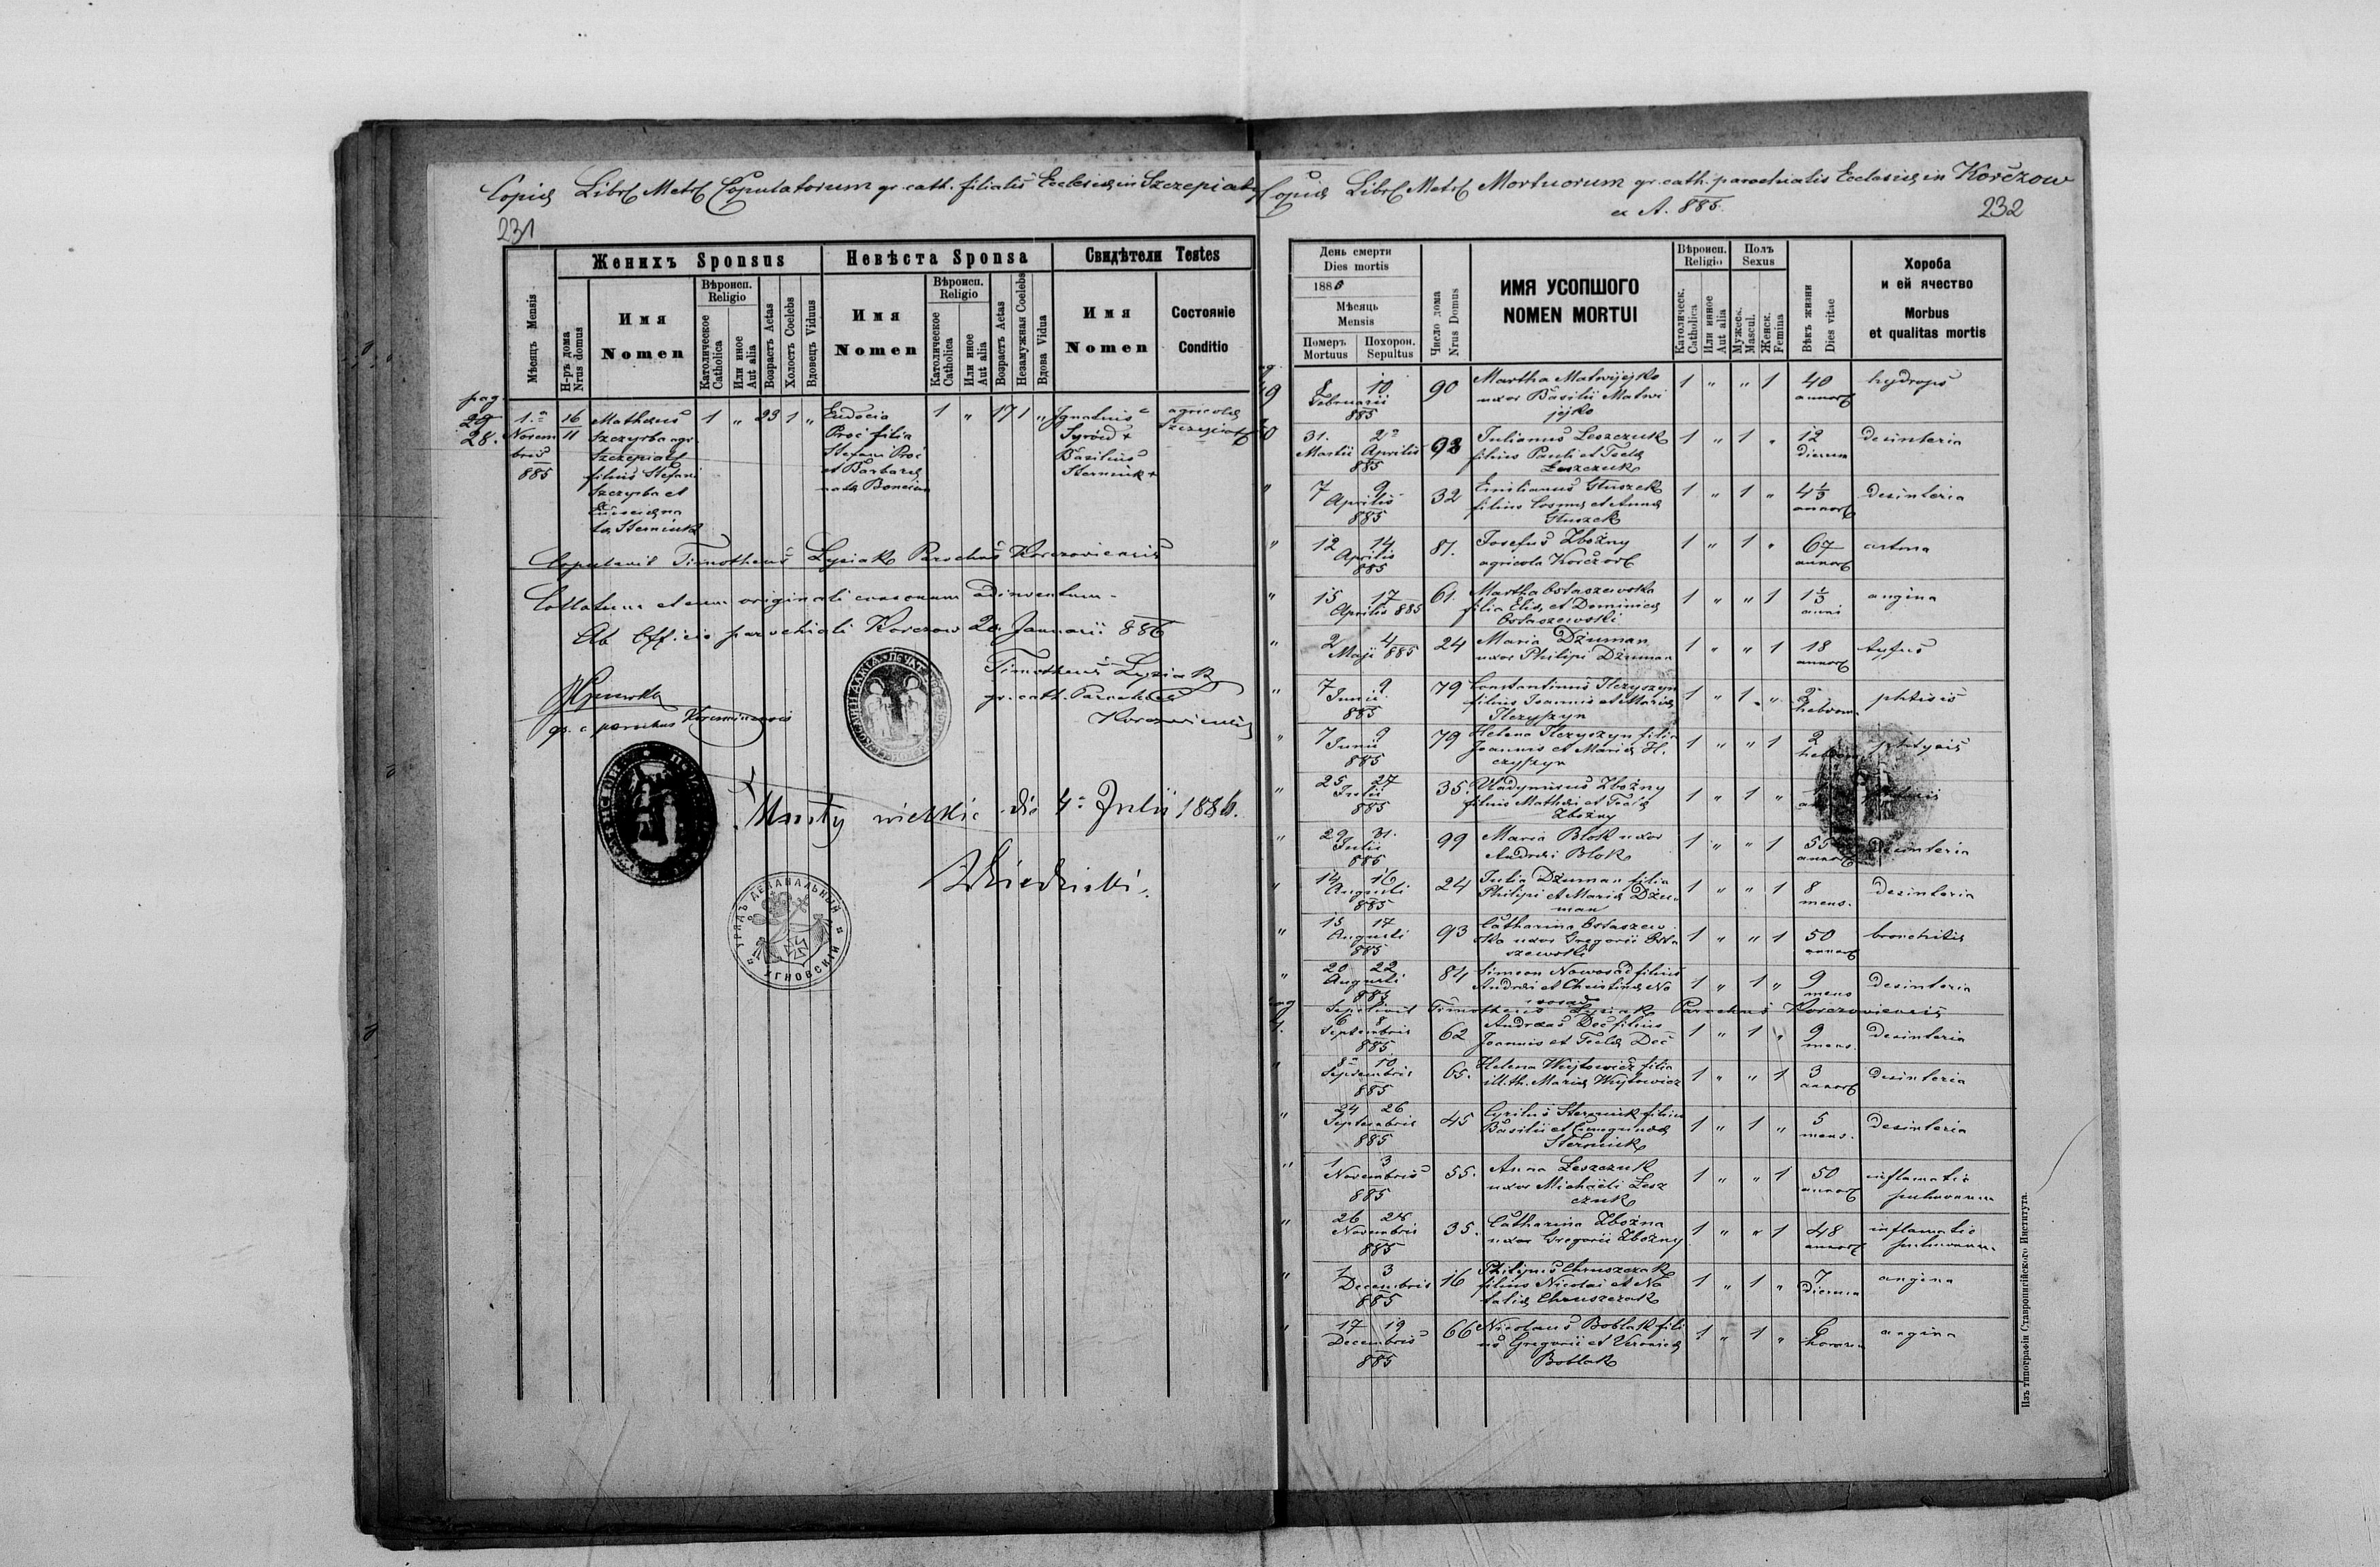 Copia Libri Metr. Copulatorum gr. cath. filialis Ecclesiae in Szczepiaty
231
Женихъ Sponsus
Невѣста Sponsa
Свидѣтели Testes
Мѣсяцъ Mensis
Н-ръ дома Nrus domus
Имя
Nomen
Вѣроисп.
Religio
Католическое Catholica
Или иное Aut alia
Возрастъ Aetas
Холостъ Coelebs
Вдовецъ Viduus
Имя
Nomen
Вѣроисп.
Religio
Католическое Catholica
Или иное Aut alia
Возрастъ Aetas
Незамужная Coelebs
Вдова Vidua
Имя
Nomen
Состояніе
Conditio
pag
28.
1. Novembris 885
16 11
Matheus
Szczyrba agr.
Szczepiaty
filius Stefani
Szczyrba et
ta Sterniuk
1 „ 23 1 „
Eudocia
Proć filia
Stefani Proć
et Barbara
nata
1 „ 17 1 „
Ignatius
Syroid +
Basilius
Sterniuk +
agricola
Szczepiaty
Copulavit Timotheus Lysiak Parochus Korczoviensis
Collatum et cum originali consonum adinventum.
Ab Officio parochiali Korczow 20 Januarii 886
Timotheus Lysiak
gr. cath. Parochus
Korczoviensis
gr. c. parochus
Mosty wielkie die 4 Julii 1886.
УРЯДЪ ДЕКАНАЛЬНЫЙ УГНОВСКІЙ
Copia Libri Metr. Mortuorum gr. cath. parochialis Ecclesiae in Korczow
ex A. 885.
232
День смерти
Dies mortis
188
Мѣсяць
Mensis
Померъ
Mortuus
Похорон.
Sepultus
Число дома
Nrus Domus
ИМЯ УСОПШОГО
NOMEN MORTUI
Вѣроисп.
Religio
Католическ. Catholica
Или иное Aut alia
Полъ
Sexus
Мужеск. Mascul.
Женск. Femina
Вѣкъ жизни
Dies vitae
Хороба
и ей ячество
Morbus
et qualitas mortis
8 10 Februarii 885 90 Martha Matwijejko 1 „ „ 1 40 annor. hydrops
uxor Basilii Matwi
jejko
31. Martii 2 Aprilis 885 93 Julianus Leszczuk 1 „ 1 „ 12 dierum desinteria
filius Pauli et Tecla
Leszczuk
7 9 Aprilis 885 32 Emilianus Głuszek 1 „ 1 „ annor. desinteria
filius Cosma et Anna
Głuszek
12 14 Aprilis 885 81. Josefus Zbożny 1 „ 1 „ 67 annor. astma
agricola Korczow
15 17 Aprilis 885 61. Martha Ostaszewska 1 „ „ 1 anni angina
filia Elia et Dominica
Ostaszewski
2 4 Maji 885 24 Maria Dżuman 1 „ „ 1 18 annor. tyfus
uxor Philipi Dżuman
7 9 Junii 885 79 Constantinus Ilczyszyn 1 „ 1 „ 2 hebdom. phtisis
filius Joannis et Maria
Ilczyszyn
7 9 Junii 885 79 Helena Ilczyszyn filia 1 „ „ 1 2
Joannis et Maria Il.
czyszyn
25 27 Julii 885 35. Wladymirus Zbożny 1 „ 1 „
filius Mathei et Tecla
Zbożny
29 31. Julii 885 99 Maria Blok uxor 1 „ „ 1 55 annor. desinteria
Andrei Blok
14 16 Augusti 885 24 Julia Dżuman filia 1 „ „ 1 8 mens. desinteria
Philipi et Maria Dżu
man
15 17 Augusti 885 93 Catharina Ostaszew 1 „ „ 1 50 annor. bronchitis
ska uxor Gregorii Osta
szewski
20 22 Augusti 885 84 Simeon Nowosad filius 1 „ 1 „ 9 mens desinteria
Andrei et Christina No
wosad
Sepelivit Timotheus Lysiak Parochus Korczoviensis
6 8 Septembris 885 62 Andreas Deć filius 1 „ 1 „ 9 mens. desinteria
Joannis et Tecla Deć
8 10 Septembris 885 65. Helena Wujtowicz filia 1 „ „ 1 3 annor. desinteria
illth. Maria Wujtowicz
24 26 Septembris 885 45 Cyrilus Sterniuk filius 1 „ 1 „ 5 mens. desinteria
Basilii et Cunegunda
Sterniuk
1 3 Novembris 885 55. Anna Leszczuk 1 „ „ 1 50 annor. inflamatio
uxor Michaeli Lesz pulmonum
czuk
26 28 Novembris 885 35. Catharina Zbożna 1 „ „ 1 48 annor. inflamatio
uxor Gregorii Zbożny pulmonum
1 3 Decembris 885 16 Philipus Chruszczak 1 „ 1 „ 7 dierum angina
filius Nicolai et Na
talia Chruszczak
17 19 Decembris 885 66 Nicolaus Boblak fili 1 „ 1 „ 6 horarum angina
us Gregorii et Veronica
Boblak
Изъ типографіи Ставропигійского Института.